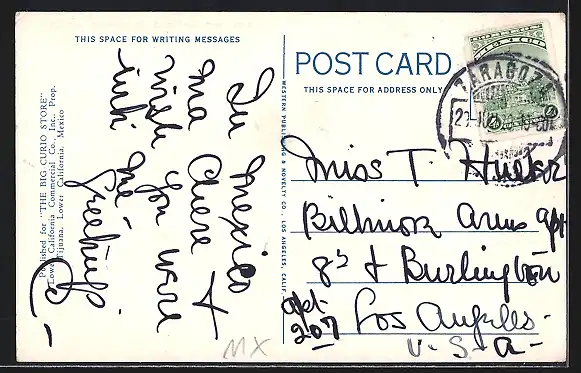 THIS SPACE FOR WRITING MESSAGES
POST CARD
THIS SPACE FOR ADDRESS ONLY
Published for "THE BIG CURIO STORE"
Lower California Commercial Co., Inc., Prop.
Tijuana, Lower California, Mexico
WESTERN PUBLISHING & NOVELTY CO., LOS ANGELES, CALIF.
In Mexico
ma Chere +
wish you were
with me
Greetings
ZARAGOZA
Miss T.
Biltmore Arms apt
8th & Burlington
apt. 207
Los Angeles.
U-S-A-
MX